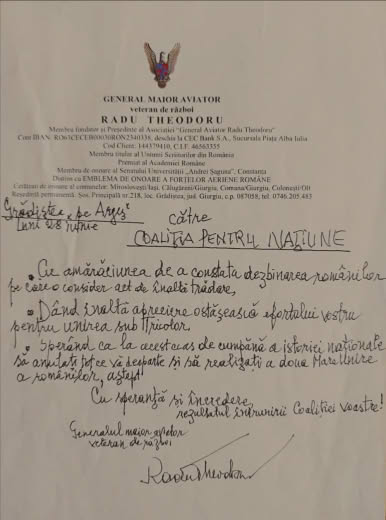 GENERAL MAIOR AVIATOR
veteran de război
RADU THEODORU
Membru fondator și Președinte al Asociației "General Aviator Radu Theodoru"
Cont IBAN: RO63CECEB00030RON2340338, deschis la CEC Bank S.A., Sucursala Piața Alba Iulia
Cod Client: 144379410, C.I.F. 46565355
Membru titular al Uniunii Scriitorilor din România
Premiat al Academiei Române
Membru de onoare al Senatului Universității „Andrei Șaguna", Constanța
Distins cu EMBLEMA DE ONOARE A FORȚELOR AERIENE ROMÂNE
Cetățean de onoare al comunelor: Miroslovești/Iași, Călugăreni/Giurgiu, Comana/Giurgiu, Colonești/Olt
Reședință permanentă: Șos. Principală nr.218, loc. Grădiștea, jud. Giurgiu, c.p. 087058, tel. 0746.205.483
Grădiștea „pe Argeș"
luni 28 iunie
către
COALIȚIA PENTRU NAȚIUNE
• Cu amărăciunea de a constata dezbinarea românilor
pe care o consider act de înaltă trădare,
• Dând înaltă apreciere ostășească efortului vostru
pentru unirea sub Tricolor,
• Sperând ca la acest ceas de cumpănă a istoriei naționale
să anulați tot ce vă desparte și să realizați a doua Mare Unire
a românilor, aștept
Cu speranță și încredere,
rezultatul întrunirii Coaliției voastre!
Generalul maior aviator
veteran de război
Radu Theodoru